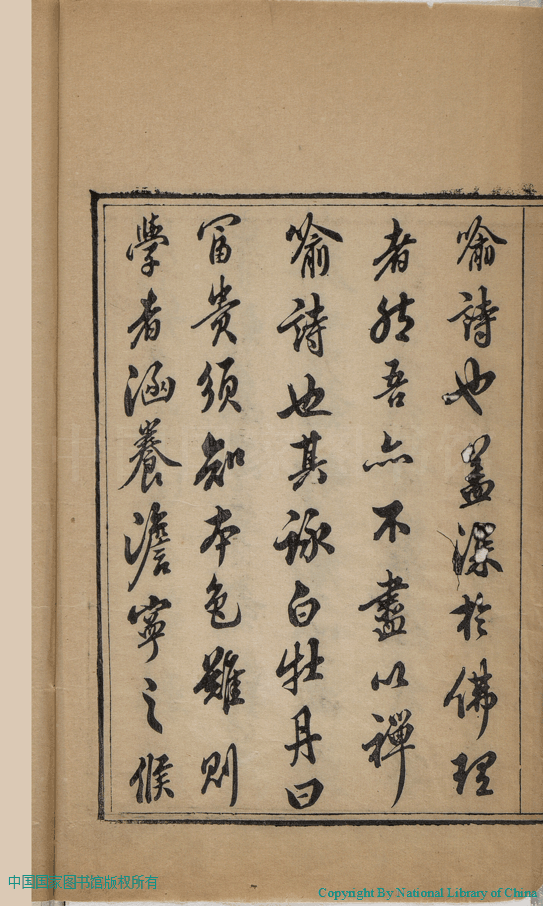 喻詩也蓋深於佛理
者然吾亦不盡以禪
喻詩也其詠白牡丹曰
富貴須知本色難則
學者涵養澹寧之候
中国国家图书馆版权所有
Copyright By National Library of China